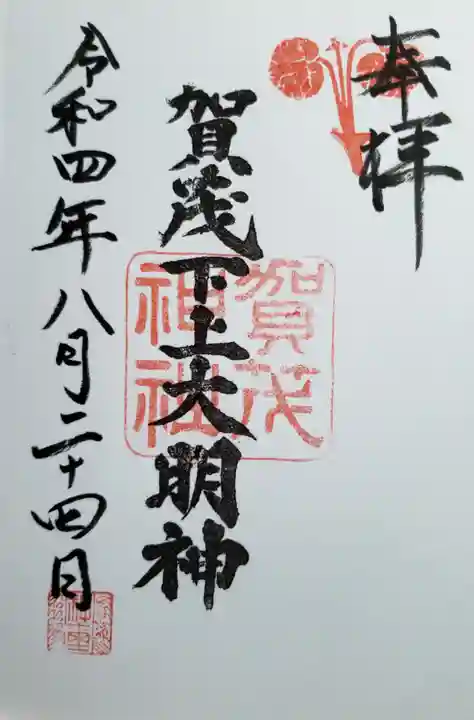 奉拝
賀茂下上大明神
賀茂
神社
令和四年八月二十四日